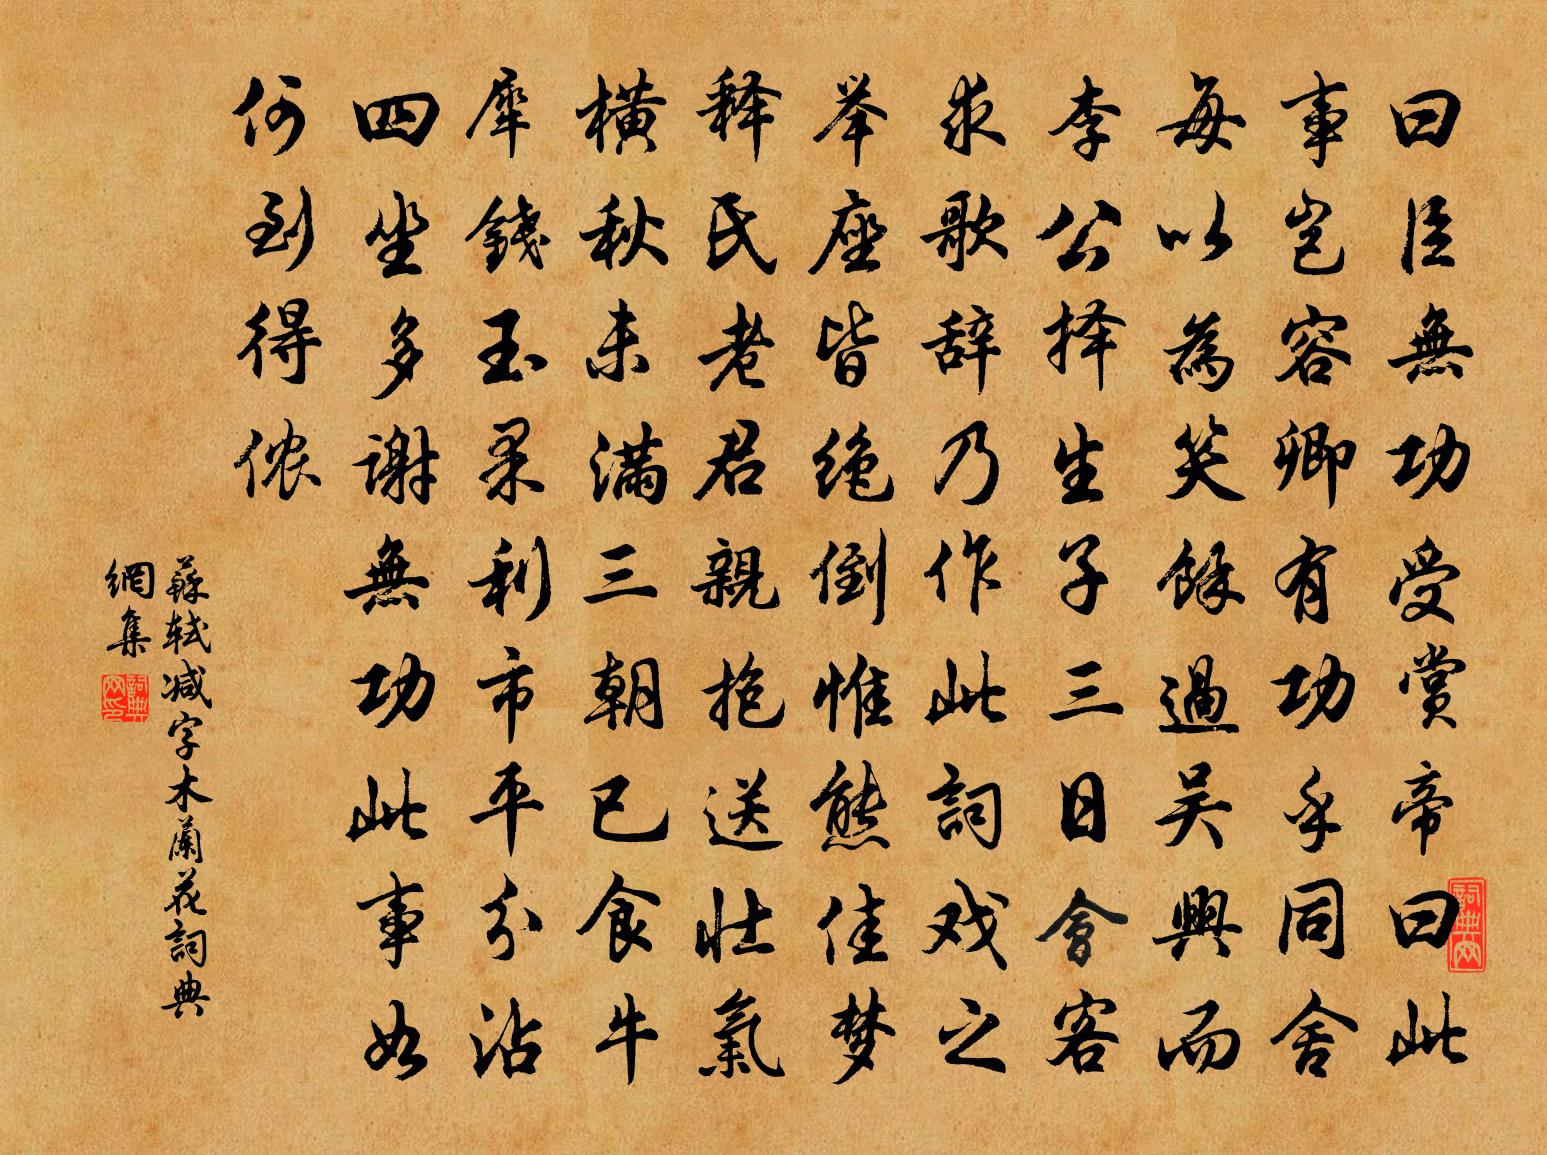 曰臣無功受賞帝曰此
事岂容卿有功乎同舍
每以為笑餘過吴興而
李公择生子三日會客
求歌辞乃作此詞戏之
举座皆绝倒惟熊佳梦
释氏老君親抱送壮氣
横秋未满三朝已食牛
犀錢玉果利市平分沾
四坐多謝無功此事如
何到得侬
蘇軾减字木蘭花詞典
網集
詞典网